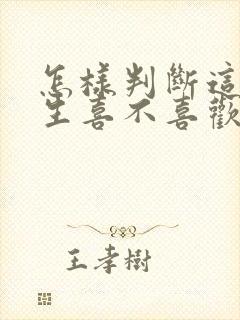 怎樣判斷這
生喜不喜歡
王孝樹